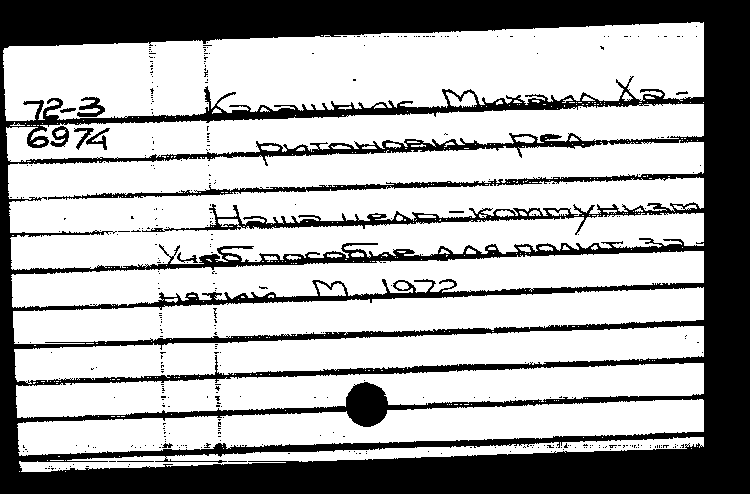 72-3 Калашник, Михаил Ха-
6974 ритонович, ред.
Наша цель - коммунизм
Учеб. пособие для полит. за-
нятий. М., 1972